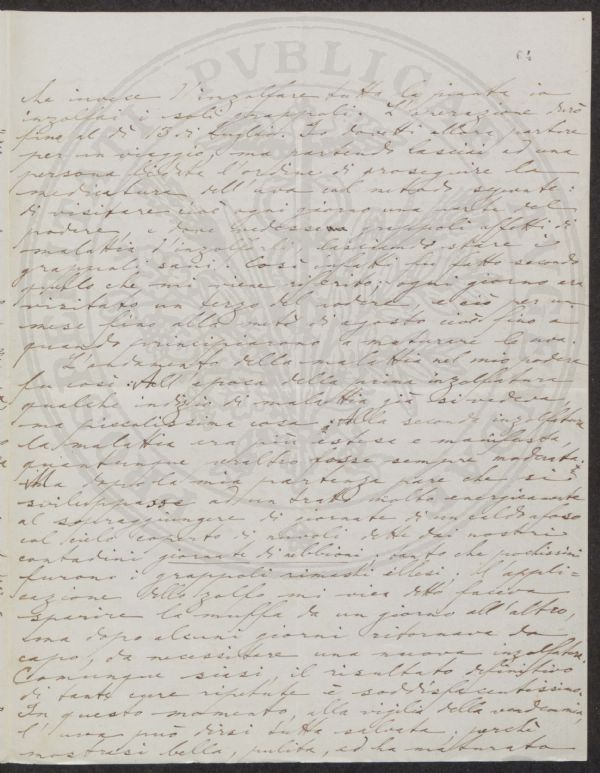 64
che invece l'inzolfare tutta la pianta in
inzolfai i soli grappoli. L'operazione durò
fino al dì 13 di luglio. Io dovetti allora partire
per un viaggio, ma partendo lasciai ad una
persona l'ordine di proseguire la
medicatura dell'uva col metodo seguente:
di visitare cioè ogni giorno una parte del
podere, e dove vedesse grappoli affetti di
malattia l'inzolfarli lasciando stare i
grappoli sani. Così infatti fu fatto secondo
quello che mi viene riferito: ogni giorno era
visitato un terzo del podere e ciò per un
mese fino alla metà di agosto cioè fino a
quando principiarono a maturare le uve.
L'andamento della malattia nel mio podere
fu così. All'epoca della prima inzolfatura
qualche indizio di malattia già si vedeva,
ma piccolissima cosa. Alla seconda inzolfatura
la malattia era più estesa e manifesta,
quantunque fosse sempre moderata.
Ma dopo la mia partenza pare che si
sviluppasse ad un tratto molto energicamente
al sopraggiungere di giornate di un caldo afoso
col cielo coperto di nuvoli dette dai nostri
contadini giornate di, tanto che pochissimi
furono i grappoli rimasti illesi; l'appli-
cazione dello zolfo mi vien detto faceva
sparire la muffa da un giorno all'altro,
ma dopo alcuni giorni ritornava da
capo, da necessitare una nuova inzolfatura.
Comunque siasi, il risultato definitivo
di tante cure ripetute è soddisfacentissimo.
In questo momento, alla vigilia della vendemmia,
l'uva può dirsi tutta salvata, perchè
mostrasi bella, pulita, ed ha maturato